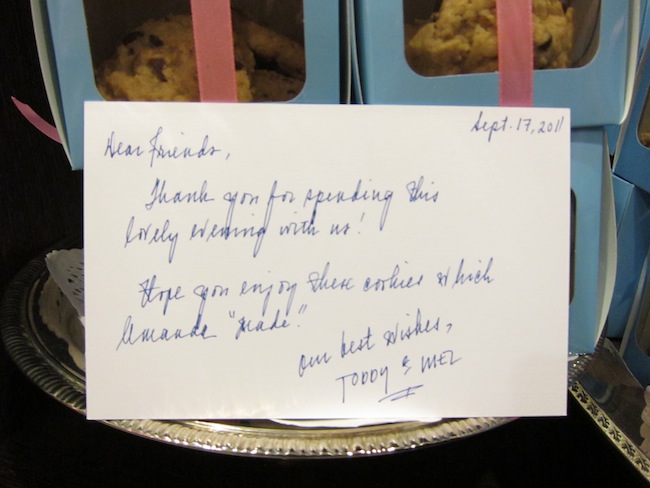 Sept. 17, 2011
Dear Friends,
Thank you for spending this
lovely evening with us!
Hope you enjoy these cookies which
Amanda "made."
Our best wishes,
TODDY & MEL